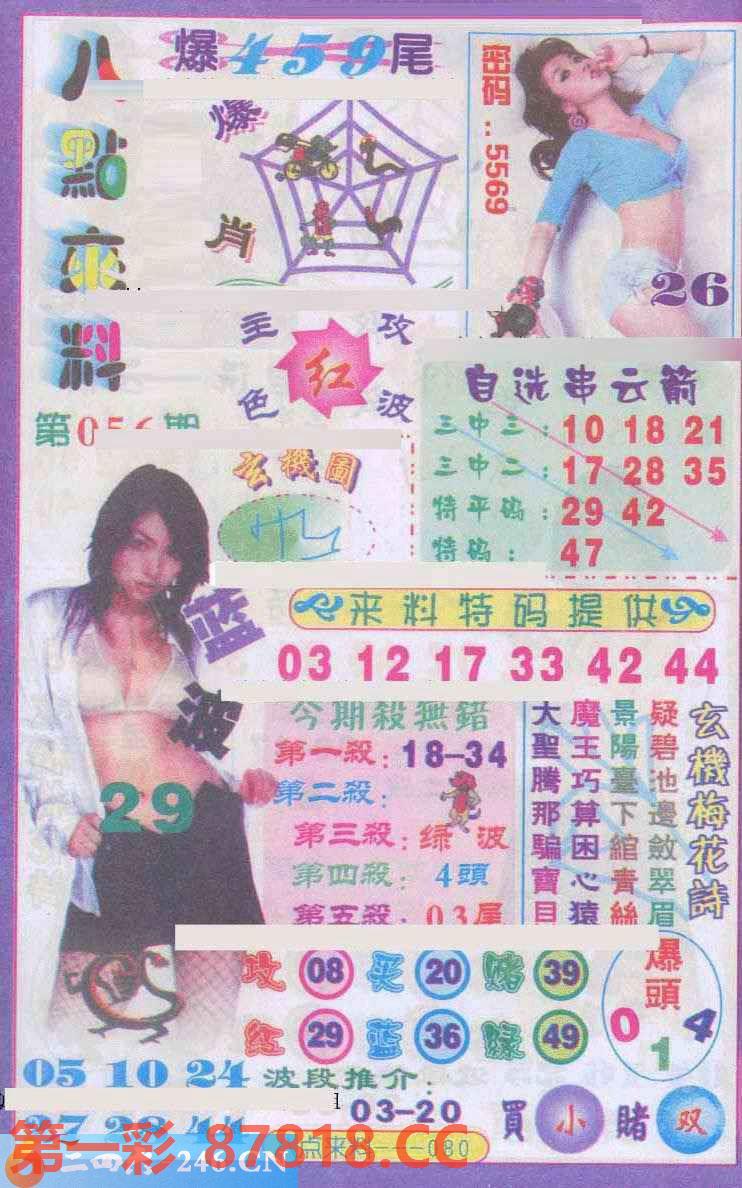 爆459尾
八點來料
爆肖
密码:5569
26
主攻
红
色波
自选串云箭
三中三:10 18 21
三中二:17 28 35
特平码:29 42
特码:47
玄機圖
蓝波
29
来料特码提供
03 12 17 33 42 44
今期殺無錯
第一殺:18-34
第二殺:
第三殺:绿波
第四殺:4頭
第五殺:03尾
玄機梅花詩
疑碧池邊斂翠眉
景陽臺下綰青絲
魔王巧算困心猿
大聖騰那騙寶貝
攻 08 买 20 赌 39
红 29 蓝 36 绿 49
爆頭
0 1 4
05 10 24
波段推介:
03-20
買小賭双
第一彩 87818.CC
246.CN
点来料 080